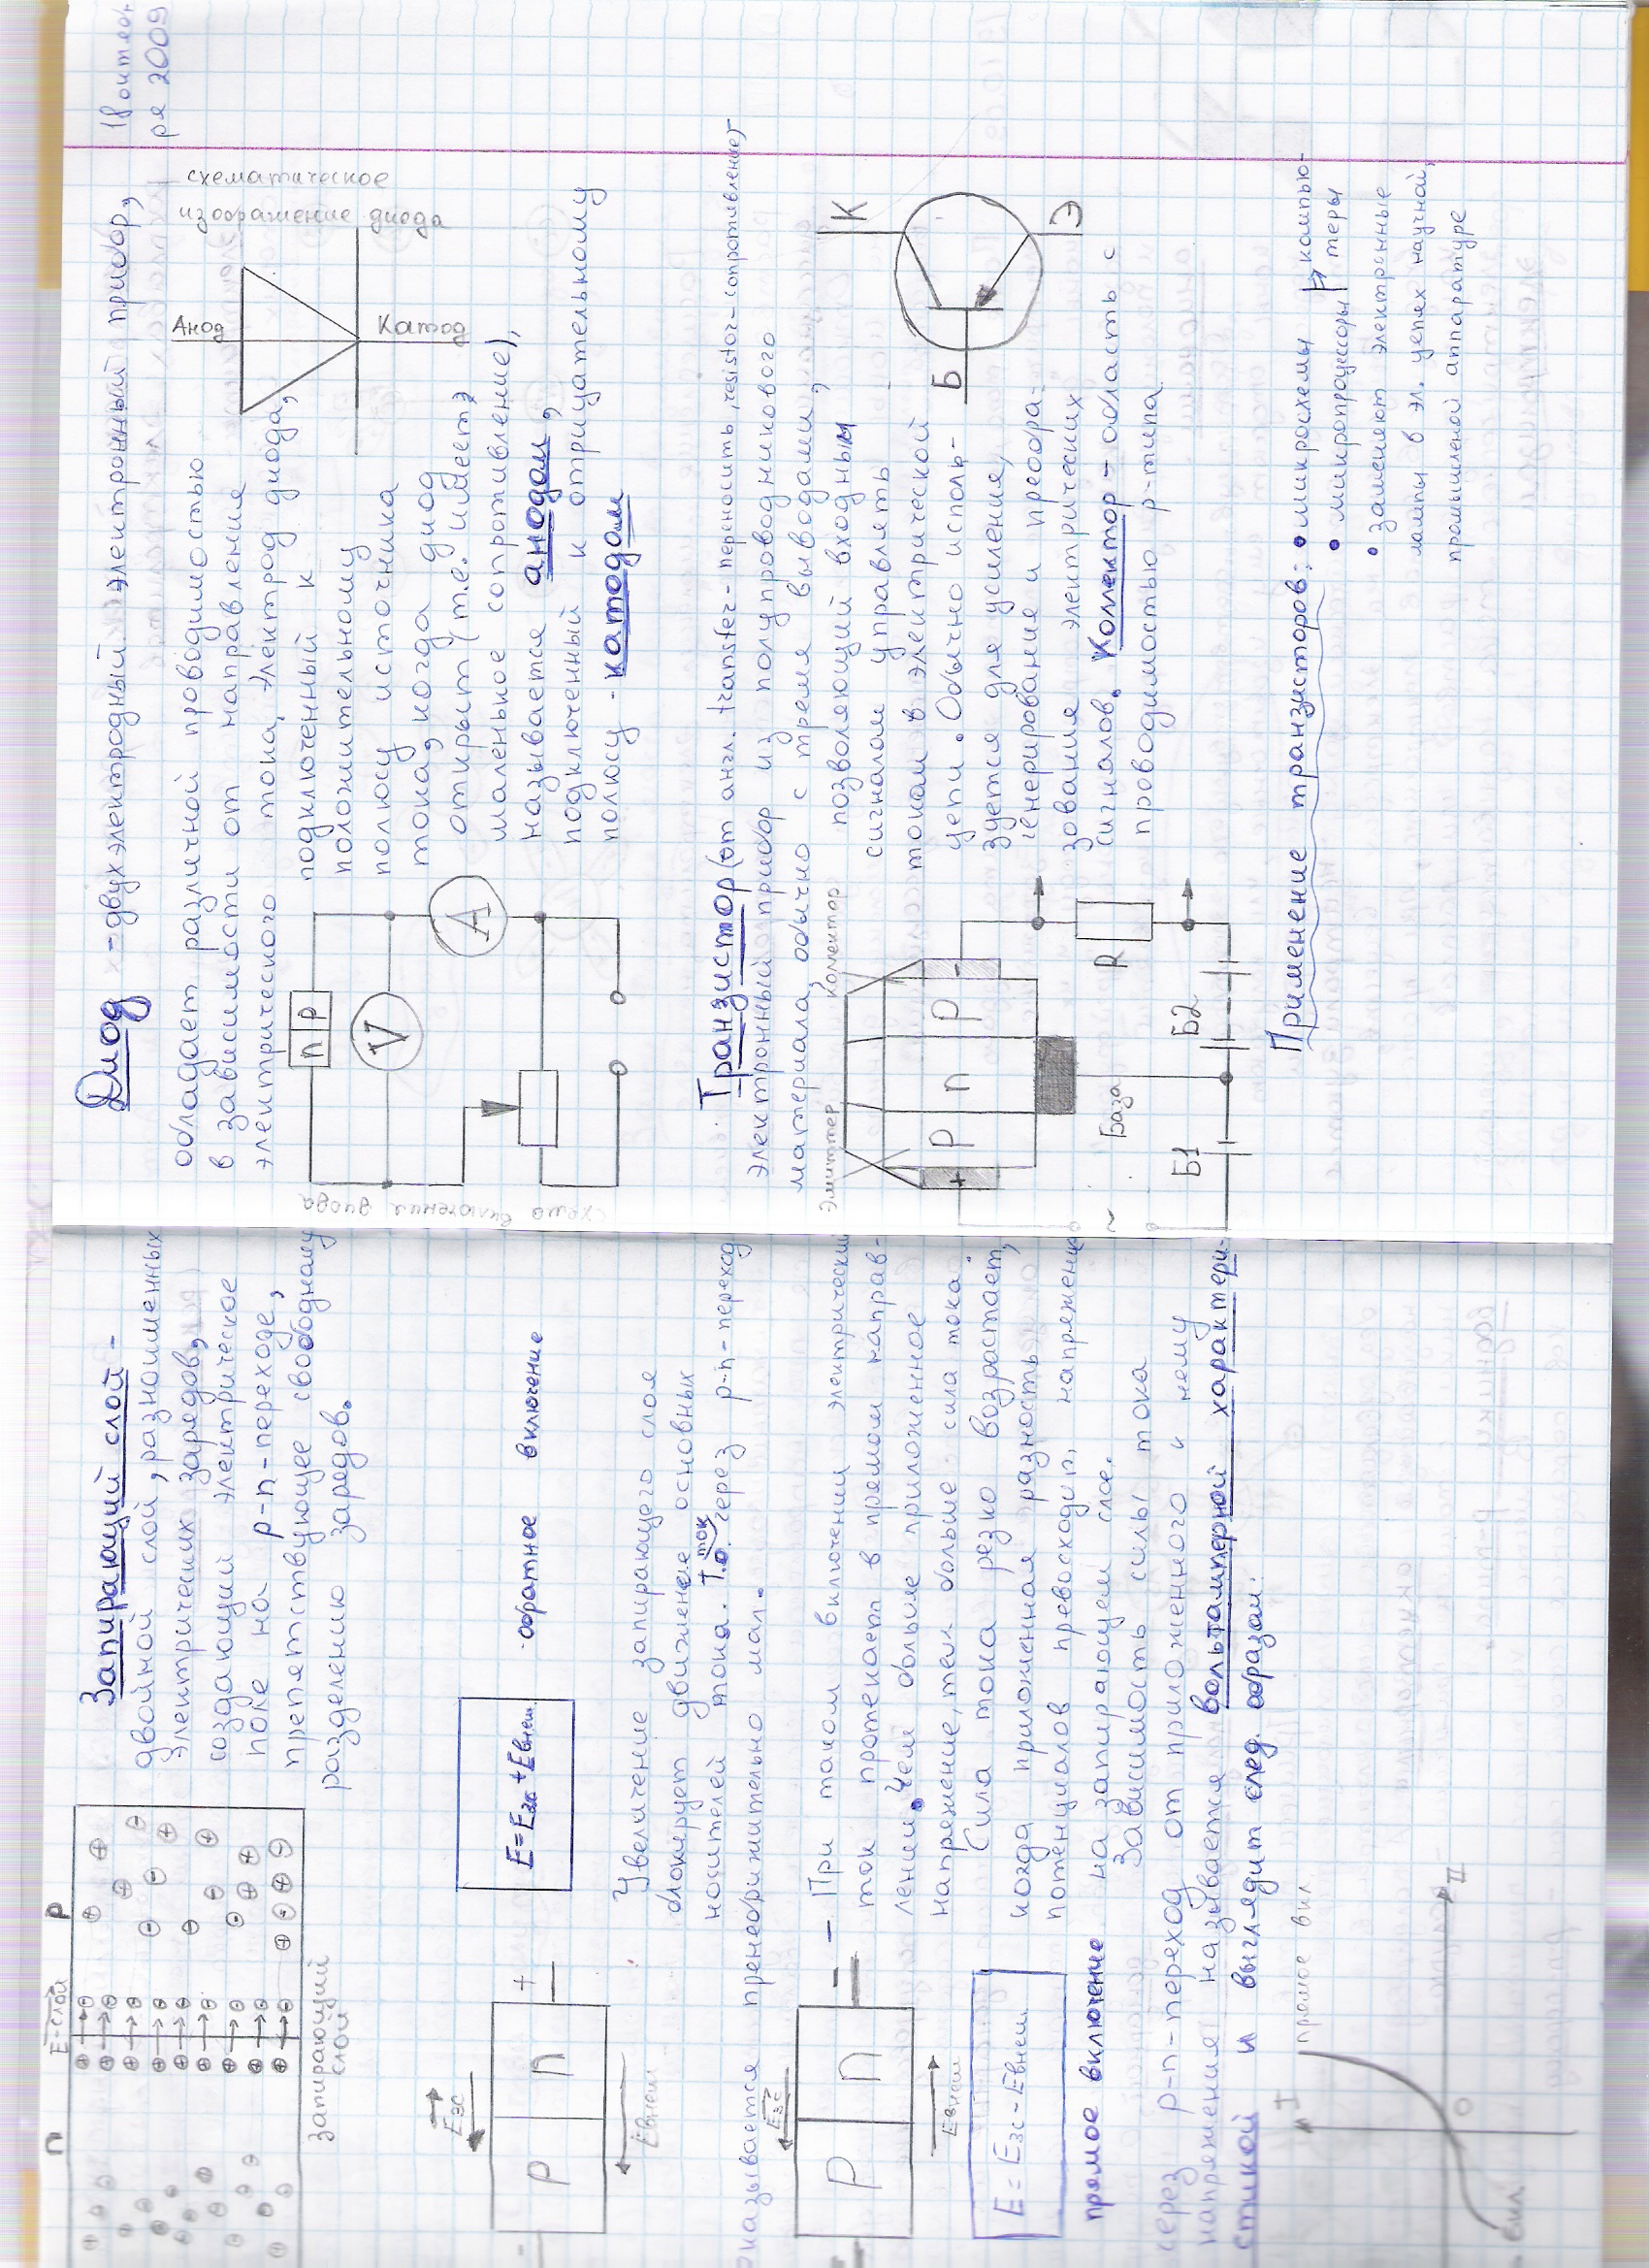 n
Е-слой
p
Запирающий слой -
двойной слой, разноименных
электрических зарядов,
создающий электрическое
поле на p-n-переходе,
препятствующее свободному
разделению зарядов.
запирающий
слой
Eзс
p n
+
-
Eвнеш
E=Eзс+Eвнеш.
обратное включение
Увеличение запирающего слоя
блокирует движение основных
носителей тока. Т.о. ток через p-n-переход
оказывается пренебрижительно мал.
Eзс
p n
-
Eвнеш
E=Eзс-Eвнеш.
прямое включение
- При таком включении электрический
ток протекает в прямом направ-
лении. Чем больше приложенное
напряжение, тем больше сила тока.
Сила тока резко возрастает,
когда приложенная разность
потенциалов превосходит напряжение
на запирающем слое.
Зависимость силы тока
через p-n-переход от приложенного к нему
напряжения называется вольтамперной характери-
стикой и выглядит след. образом:
I
прямое вкл
O
U
вкл.
18 октяб
ря 2009
Диод - двухэлектродный электронный прибор,
обладает различной проводимостью
в зависимости от направления
электрического тока, электрод диода,
подключенный к
положительному
полюсу источника
тока, когда диод
открыт (т.е. имеет
маленькое сопротивление),
называется анодом,
подключенный к отрицательному
полюсу - катодом
схематическое
изображение диода
Анод
Катод
n p
V
A
схема включения диода
Транзистор (от англ. transfer- переносить, resistor-сопротивление)-
электронный прибор из полупроводникового
материала, обычно с тремя выводами,
позволяющий входным
сигналам управлять
током в электрической
цепи. Обычно исполь-
зуется для усиления,
генерирование и преобра-
зование электрических
сигналов. Коллектор - область с
проводимостью p-типа
Эмиттер
коллектор
+ p n p -
База
R
~
Б1
Б2
К
Б
Э
Применение транзисторов: • микросхемы
• микропроцессоры
компью-
теры
• заменяют электронные
лампы в эл. цепях научной,
промышленой аппаратуре